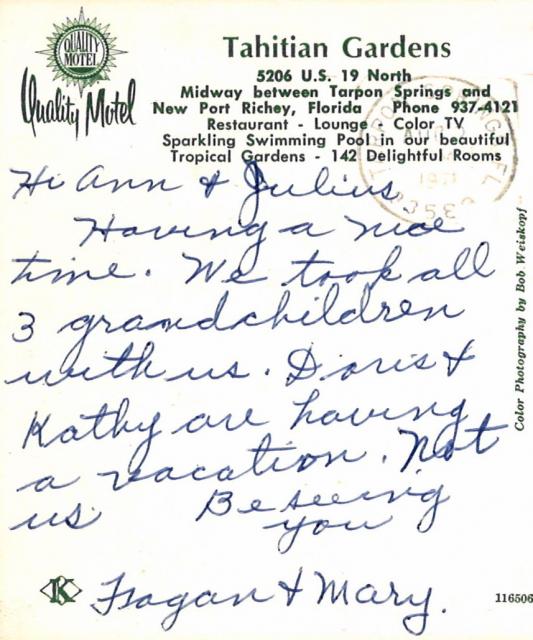 QUALITY
MOTEL
Quality Motel
Tahitian Gardens
5206 U.S. 19 North
Midway between Tarpon Springs and
New Port Richey, Florida Phone 937-4121
Restaurant - Lounge - Color TV
Sparkling Swimming Pool in our beautiful
Tropical Gardens - 142 Delightful Rooms
Hi Ann & Julius
Having a nice
time. We took all
3 grandchildren
with us. Doris &
Kathy are having
a vacation. Not
us Be seeing
you
& Mary.
K
116506
Color Photography by Bob Weiskopf